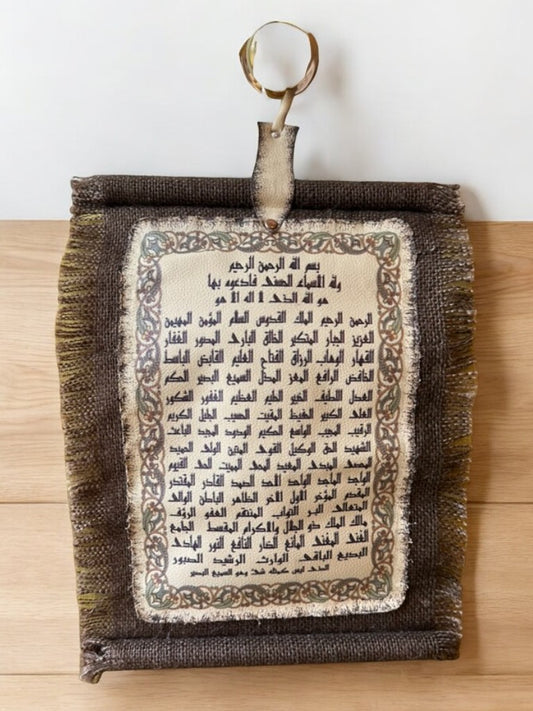 بسم الله الرحمن الرحيم
ولله الاسماء الحسنى فادعوه بها
هو الله الذي لا اله الا هو
الرحمن الرحيم الملك القدوس السلم المؤمن المهيمن
العزيز الجبار المتكبر الخالق البارئ المصور الغفار
القهار الوهاب الرزاق الفتاح العليم القابض الباسط
الخافض الرافع المعز المذل السميع البصير الحكم
العدل اللطيف الخبير الحليم العظيم الغفور الشكور
العلي الكبير الحفيظ المقيت الحسيب الجليل الكريم
الرقيب المجيب الواسع الحكيم الودود المجيد الباعث
الشهيد الحق الوكيل القوي المتين الولي الحميد
المحصي المبدئ المعيد المحيي المميت الحي القيوم
الواجد الماجد الواحد الاحد الصمد القادر المقتدر
المقدم المؤخر الاول الاخر الظاهر الباطن الوالي
المتعالي البر التواب المنتقم العفو الرؤف
مالك الملك ذو الجلال والاكرام المقسط الجامع
الغني المغني المانع الضار النافع النور الهادي
البديع الباقي الوارث الرشيد الصبور
الذي ليس كمثله شئ وهو السميع البصير